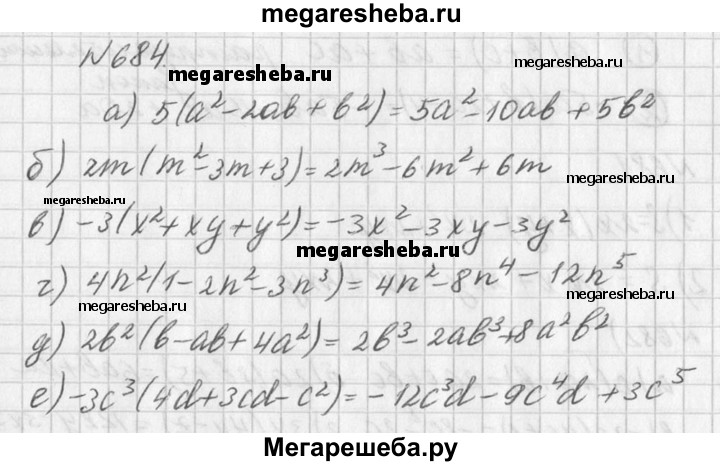 megaresheba.ru
№684.
megaresheba.ru
megaresheba.ru
а) 5(a²-2ab+b²)=5a²-10ab+5b²
б) 2m(m²-3m+3)=2m³-6m²+6m
megaresheba.ru
megaresheba.ru
в) -3(x²+xy+y²)=-3x²-3xy-3y²
megaresheba.ru
г) 4n²(1-2n²-3n³)=4n²-8n⁴-12n⁵
megaresheba.ru
megaresheba.ru
д) 2b²(b-ab+4a²)=2b³-2ab³+8a²b²
е) -3c³(4d+3cd-c²)=-12c³d-9c⁴d+3c⁵
Мегарешеба.ру